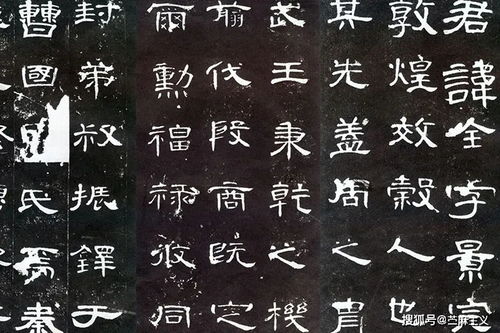 君諱全字景完
敦煌效穀人也
其先蓋周之胄
武王秉乾之機
翦伐殷商既定
爾勳福祿攸同
封弟叔振鐸于
曹國氏焉秦
搜狐号@苎麻主义